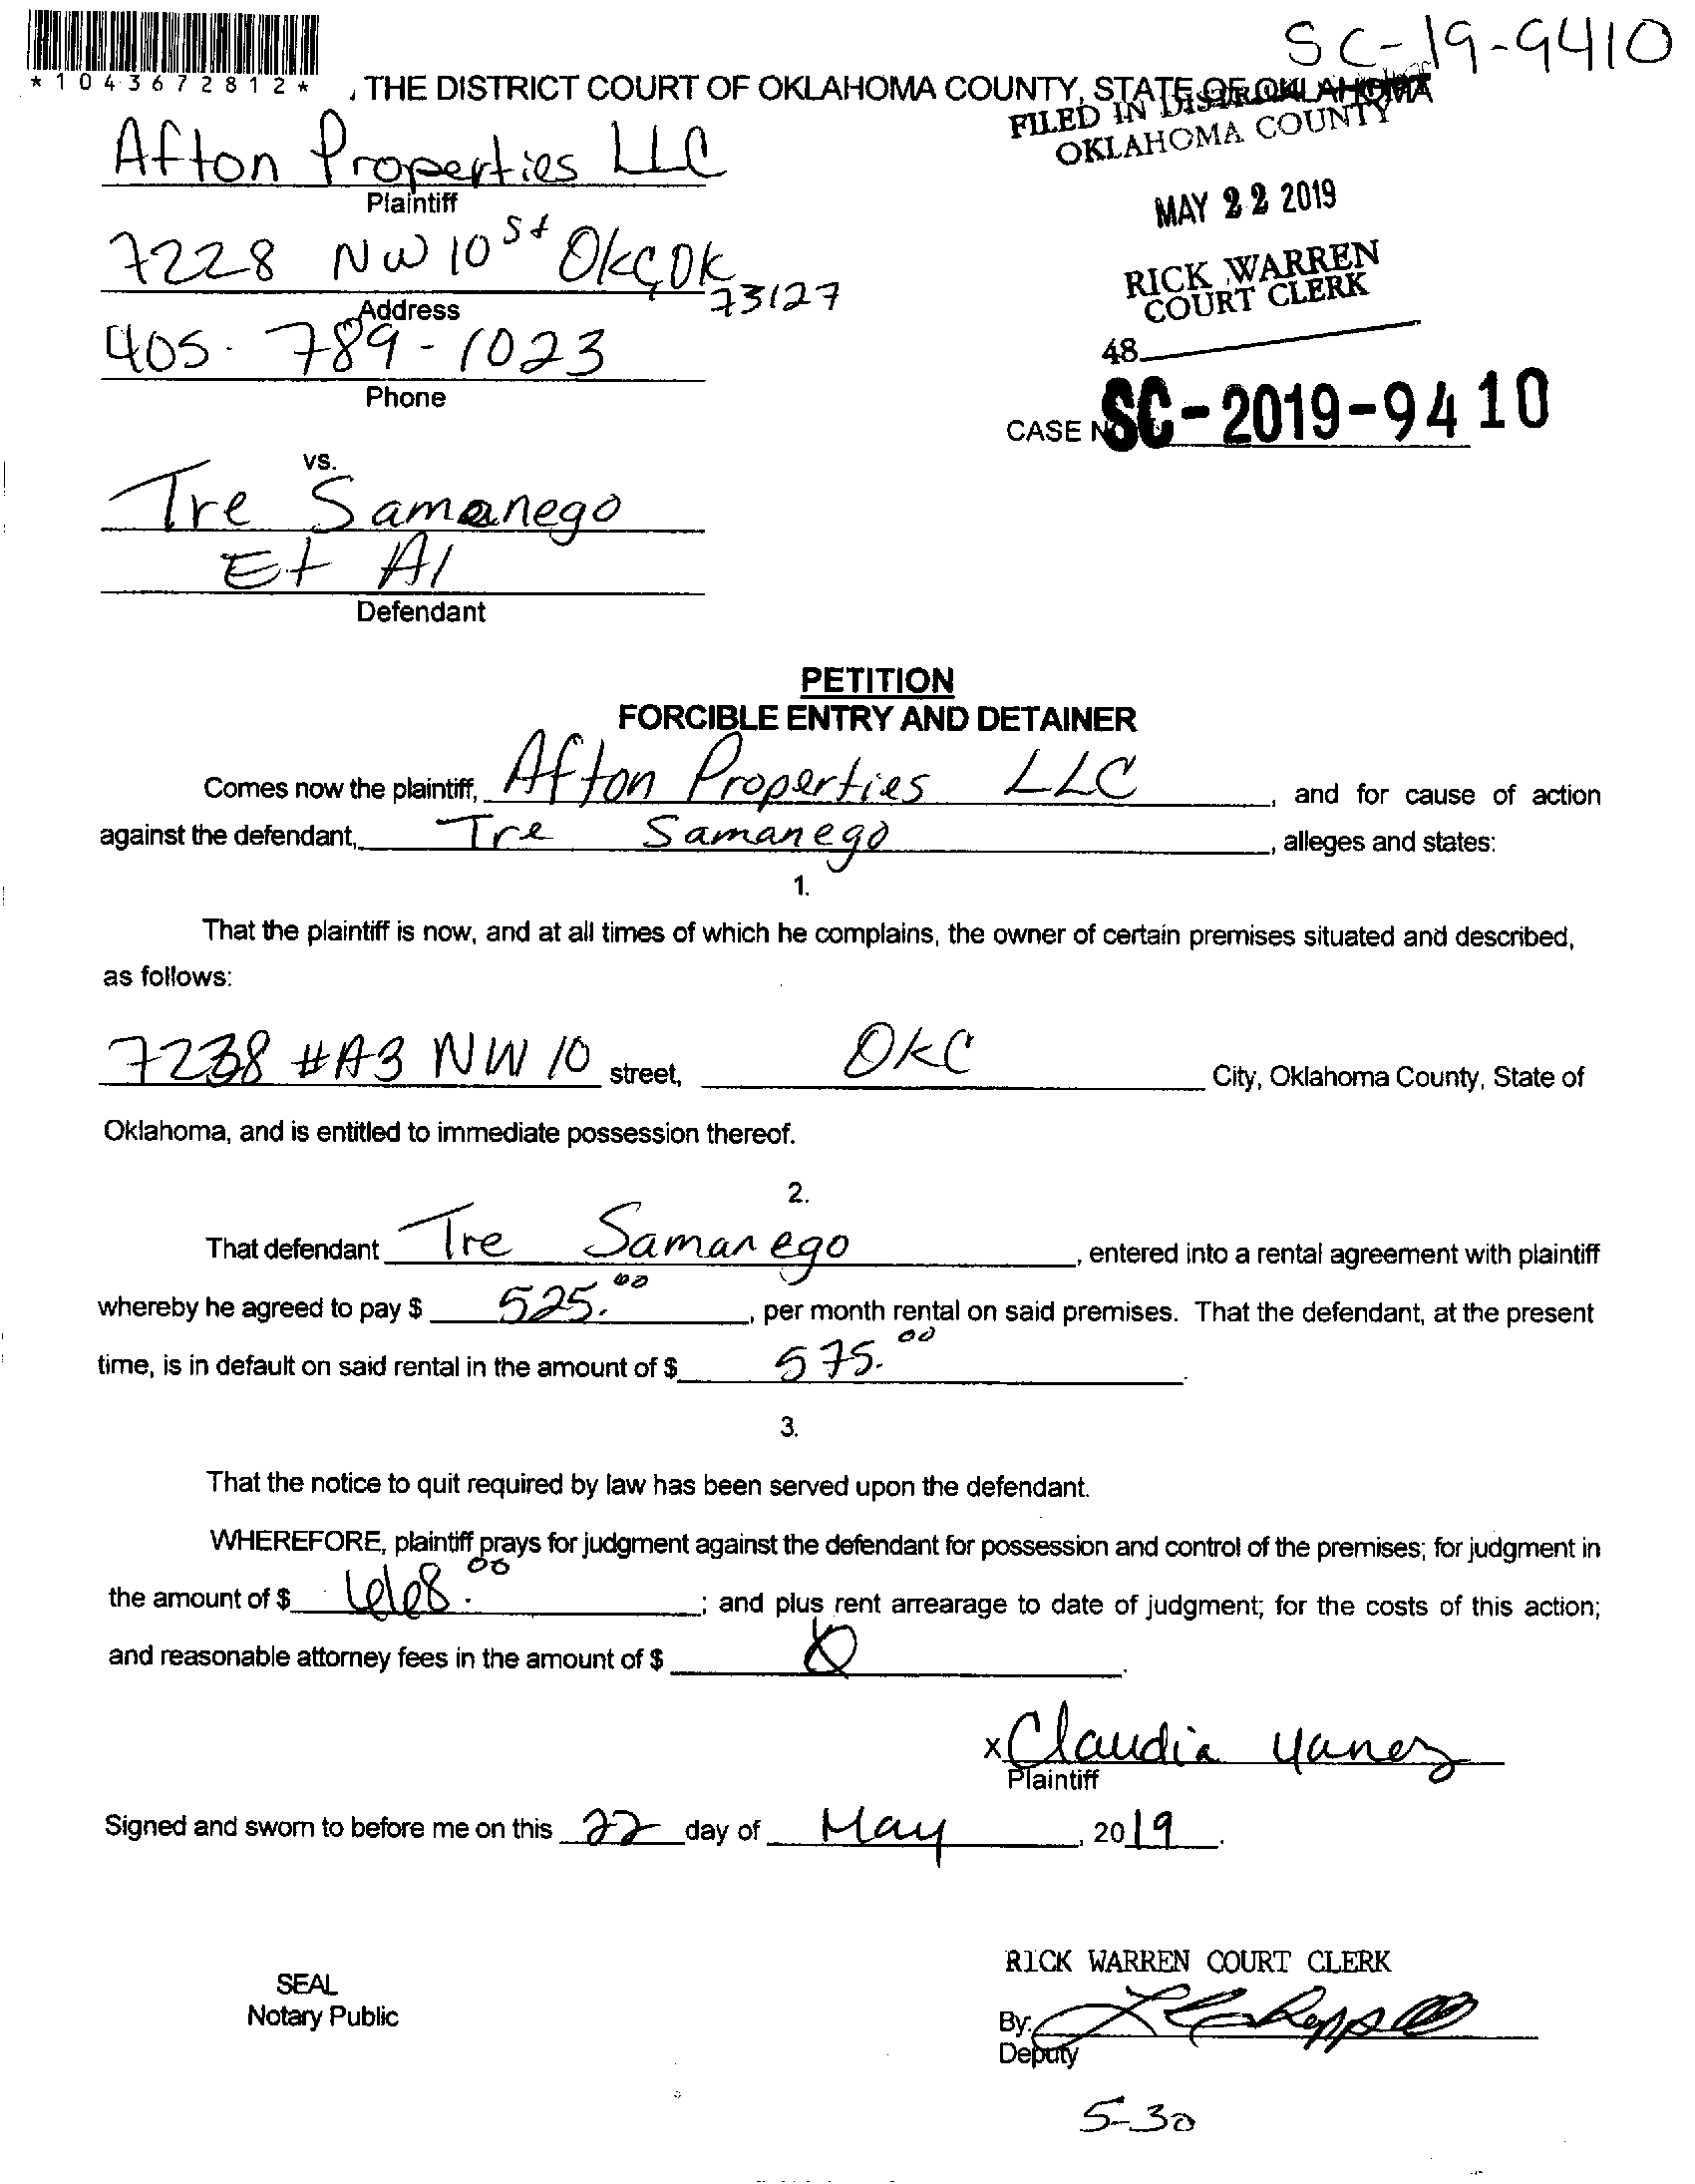 SC-19-9410
*1043672812*
, THE DISTRICT COURT OF OKLAHOMA COUNTY, STATE OF OKLAHOMA
FILED IN DISTRICT
OKLAHOMA COUNTY
Afton Properties LLC
Plaintiff
MAY 22 2019
7228 NW 10 St OKC, OK
73127
RICK WARREN
COURT CLERK
Address
405-789-1023
48
Phone
CASE NO. SC-2019-9410
vs.
Tre Samanego
Et Al
Defendant
PETITION
FORCIBLE ENTRY AND DETAINER
Comes now the plaintiff, Afton Properties LLC, and for cause of action
against the defendant, Tre Samanego, alleges and states:
1.
That the plaintiff is now, and at all times of which he complains, the owner of certain premises situated and described,
as follows:
7238 #A3 NW 10 street, OKC City, Oklahoma County, State of
Oklahoma, and is entitled to immediate possession thereof.
2.
That defendant Tre Samanego, entered into a rental agreement with plaintiff
whereby he agreed to pay $ 525.00, per month rental on said premises. That the defendant, at the present
time, is in default on said rental in the amount of $ 575.00.
3.
That the notice to quit required by law has been served upon the defendant.
WHEREFORE, plaintiff prays for judgment against the defendant for possession and control of the premises; for judgment in
the amount of $ 668.00; and plus rent arrearage to date of judgment; for the costs of this action;
and reasonable attorney fees in the amount of $ 0.
x Claudia Yanez
Plaintiff
Signed and sworn to before me on this 22 day of May, 2019.
RICK WARREN COURT CLERK
SEAL
Notary Public
By:
Deputy
5-30